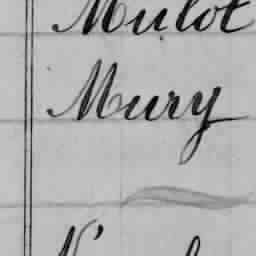 Mulot
Mury